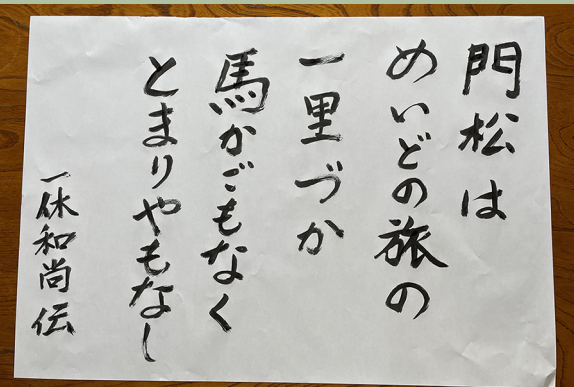 門松は
めいどの旅の
一里づか
馬かごもなく
とまりやもなし
一休和尚伝